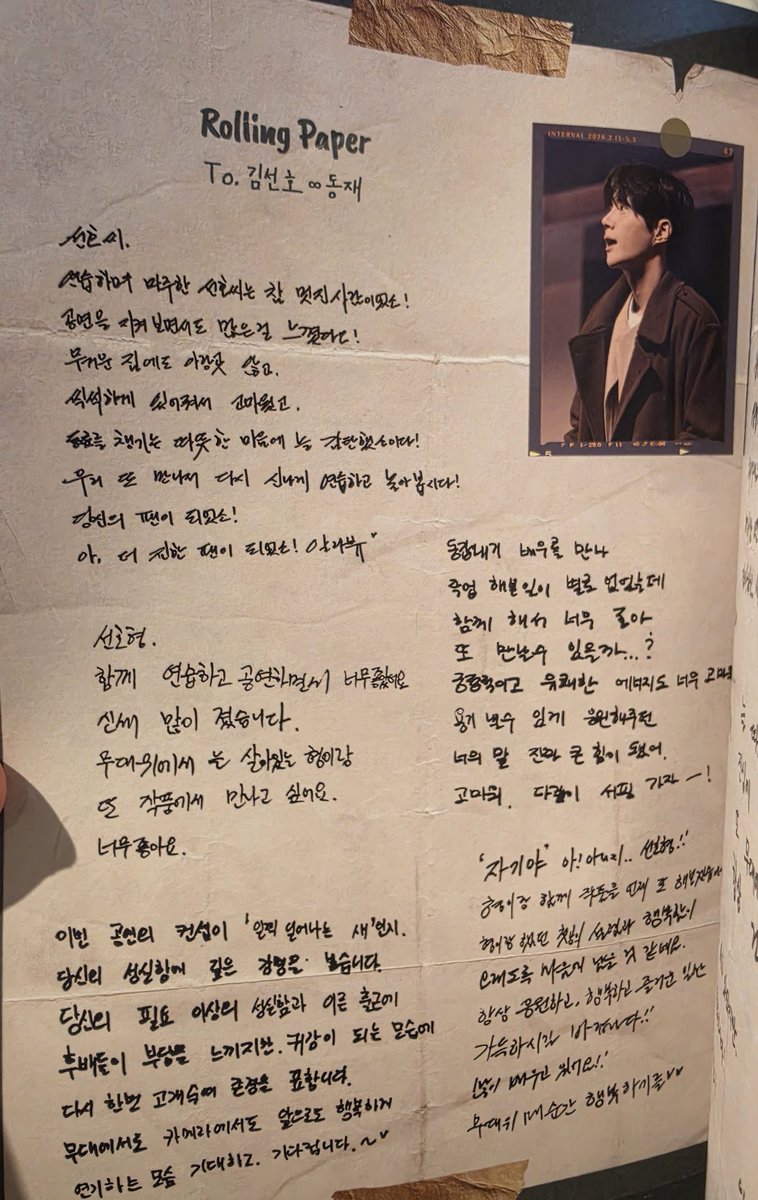 Rolling Paper
To. 김선호 ∞ 동재
INTERVAL 2026.2.15-5.3
47
5
선호씨.
연습하며 마주한 선호씨는 참 멋진사람이었소!
공연을 지켜보면서도 많은걸 느꼈다오!
무거운 짐에도 아랑곳 않고,
씩씩하게 있어줘서 고마웠고,
동료를 챙기는 따뜻한 마음에 늘 감탄했소이다!
우리 또 만나서 다시 신나게 연습하고 놀아봅시다!
당신의 팬이 되었소!
아, 더 진한 팬이 되었소! 알라뷰
동갑내기 배우를 만나
작업 해본일이 별로 없었는데
함께 해서 너무 좋아
또 만날수 있을까...?
긍정적이고 유쾌한 에너지도 너무 고마워
용기 낼수 있게 응원해주던
너의 말 진짜 큰 힘이 됐어.
고마워. 다같이 서핑 가자 ㅡ!
선호형.
함께 연습하고 공연하면서 너무좋았어요
신세 많이 졌습니다.
무대위에서 늘 살아있는 형이랑
또 작품에서 만나고 싶어요.
너무좋아요.
'자기야' 아! 아니지.. 선호형!!
형이랑 함께 작품을 언제 또 해보겠습니까
형이랑 했던 첫
오래도록 남을 것 같네요.
항상 응원하고, 행복하고 즐거운 일만
가득하시길 바랍니다!!
많이 배우고 있어요!!
무대위 매순간 행복하기를♡♡
이번 공연의 컨셉이 '일찍 일어나는 새'인지.
당신의 성실함에 깊은 감명을 받습니다.
당신의 필요 이상의 성실함과 이른 출근에
후배들이 부담을 느끼지만, 귀감이 되는 모습에
다시 한번 고개숙여 존경을 표합니다.
무대에서도 카메라에서도 앞으로도 행복하게
연기하는 모습 기대하고, 기다립니다.~♡